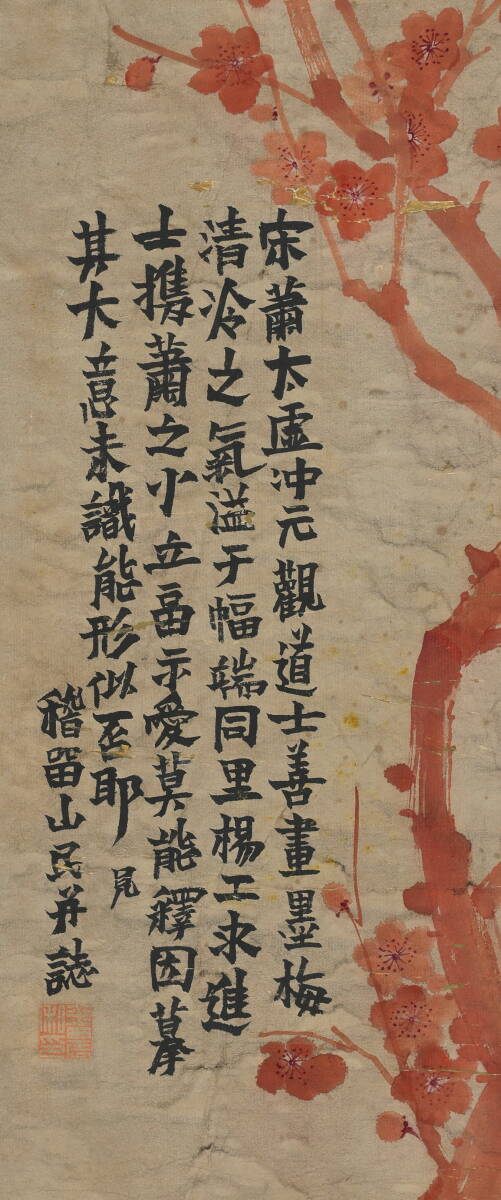 宋蕭太虛冲元觀道士善畫墨梅
清冷之氣溢于幅端同里楊工求進
士攜蕭之小立畐示愛莫能釋因摹
其大意未識能形似否耶 見
稽留山民并誌